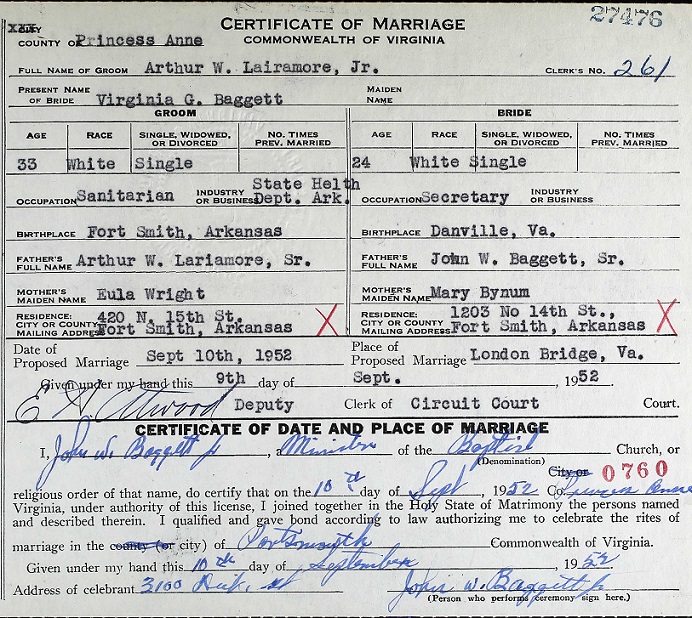 CERTIFICATE OF MARRIAGE
27476
CITY
COUNTY OF Princess Anne
COMMONWEALTH OF VIRGINIA
FULL NAME OF GROOM Arthur W. Lairamore, Jr. CLERK'S NO. 261
PRESENT NAME OF BRIDE Virginia G. Baggett MAIDEN NAME
GROOM BRIDE
AGE RACE SINGLE, WIDOWED, OR DIVORCED NO. TIMES PREV. MARRIED AGE RACE SINGLE, WIDOWED, OR DIVORCED NO. TIMES PREV. MARRIED
33 White Single 24 White Single
OCCUPATION Sanitarian INDUSTRY OR BUSINESS State Helth Dept. Ark. OCCUPATION Secretary INDUSTRY OR BUSINESS
BIRTHPLACE Fort Smith, Arkansas BIRTHPLACE Danville, Va.
FATHER'S FULL NAME Arthur W. Lariamore, Sr. FATHER'S FULL NAME John W. Baggett, Sr.
MOTHER'S MAIDEN NAME Eula Wright MOTHER'S MAIDEN NAME Mary Bynum
RESIDENCE: CITY OR COUNTY MAILING ADDRESS 420 N. 15th St. Fort Smith, Arkansas X RESIDENCE: CITY OR COUNTY MAILING ADDRESS 1203 No 14th St., Fort Smith, Arkansas X
Date of Proposed Marriage Sept 10th, 1952 Place of Proposed Marriage London Bridge, Va.
Given under my hand this 9th day of Sept. , 1952.
E Atwood Deputy Clerk of Circuit Court Court.
CERTIFICATE OF DATE AND PLACE OF MARRIAGE
I, John W. Baggett Jr , Minister of the Baptist Church, or
(Denomination) City or 0760
religious order of that name, do certify that on the 10th day of Sept , 1952 Co Princess Anne
Virginia, under authority of this license, I joined together in the Holy State of Matrimony the persons named
and described therein. I qualified and gave bond according to law authorizing me to celebrate the rites of
marriage in the county (or city) of Portsmouth Commonwealth of Virginia.
Given under my hand this 10th day of September , 1952
Address of celebrant 3100 st John W. Baggett Jr
(Person who performs ceremony sign here.)